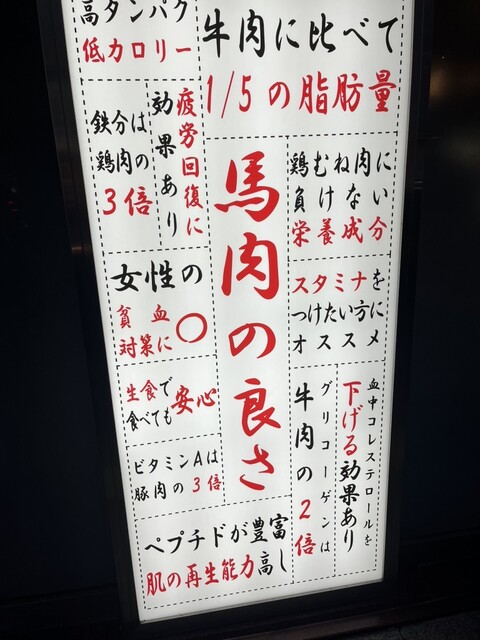 高タンパク
低カロリー
牛肉に比べて
1/5の脂肪量
鉄分は
鶏肉の
3倍
疲労回復に
効果あり
馬肉の良さ
鶏むね肉に
負けない
栄養成分
スタミナを
つけたい方に
オススメ
女性の
貧血
対策に〇
生食で
食べても
安心
ビタミンAは
豚肉の3倍
血中コレステロールを
下げる効果あり
グリコーゲンは
牛肉の2倍
ペプチドが豊富
肌の再生能力高し